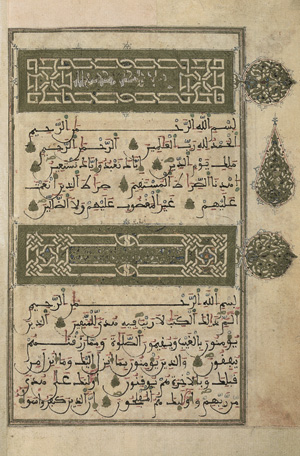 بسم الله الرحمن الرحيم
الحمد لله رب العلمين الرحمن الرحيم
ملك يوم الدين اياك نعبد واياك نستعين
اهدنا الصراط المستقيم صراط الذين انعمت
عليهم غير المغضوب عليهم ولا الضالين
بسم الله الرحمن الرحيم
الم ذلك الكتب لا ريب فيه هدى للمتقين الذين
يومنون بالغيب ويقيمون الصلوة ومما رزقنهم
ينفقون والذين يومنون بما انزل اليك وما انزل من
قبلك وبالاخرة هم يوقنون اولئك على هدى
من ربهم واولئك هم المفلحون ان الذين كفروا سوا